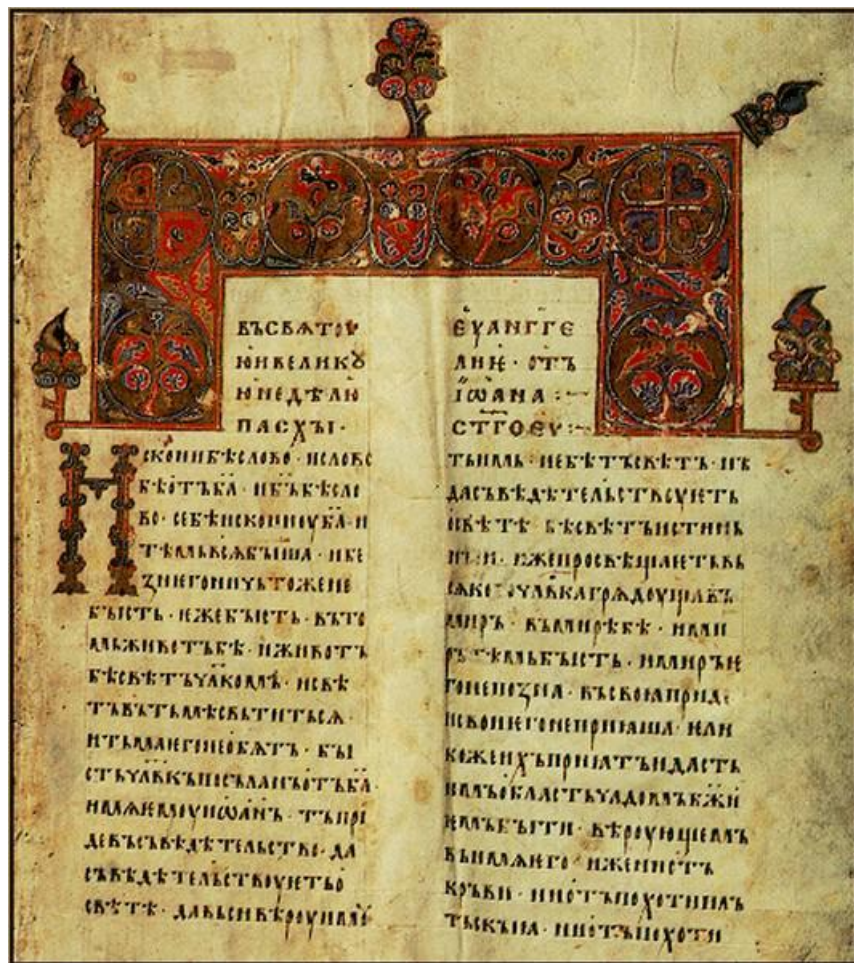 ВЪСВѦТОУ
ЮИВЕЛИКꙊ
ЮНЕДѢЛЮ
ПАСХЪІ·
ИСКОНИБѢСЛОВО· ИСЛОВО
БѢОТЪБ҃А· ИБ҃ЪБѢСЛО
ВО· СЕБѢИСКОНИОУБ҃А· И
ТѢМЬВСѦБЪІША· ИБЕ
ЗНЕГОНИЧЬТОЖЕНЕ
БЪІСТЬ· ЕЖЕБЪІСТЬ· ВЪТО
МЬЖИВОТЪБѢ· ИЖИВОТЪ
БѢСВѢТЪЧЛ҃КОМЪ· ИСВѢ
ТЪВЪТЬМѢСВЬТИТЬСѦ·
ИТЬМАѤГОНЕОБѦТЪ· БЪІ
СТЬЧЛ҃КЪПОСЪЛАНЪОТЪБ҃А·
ИМѦѤМОУИѠАНЪ· ТЪПРІ
ДЕВЪСЪВѢДѢТЕЛЬСТВО· ДА
СЪВѢДѢТЕЛЬСТВОУѤТЬО
СВѢТѢ· ДАВЬСИВѢРОУИМꙊ
ЕУАНГГЕ
ЛИѤ· ОТЪ
ІѠАНА :~
СТ҃ГОЕУ :~
ТЬИМЬ· НЕБѢТЪСВѢТЪ· НЪ
ДАСЪВѢДѢТЕЛЬСТВОУѤТЬ
ОСВѢТѢ· БѢСВѢТЪИСТИНЬ
НЪИ· ИЖЕПРОСВѢЩАѤТЬВЬ
СѦКОГОЧЛ҃КАГРѦДОУЩАВЪ
МИРЪ· ВЪМИРѢБѢ· ИМИ
РЪТѢМЬБЫСТЬ· ИМИРЪѤ
ГОНЕПОЗНА· ВЪСВОꙖПРИДЕ
ИСВОИѤГОНЕПРИꙖША· ѤЛИ
КОЖЕИХЪПРИꙖТЪИДАСТЬ
ИМЪОБЛАСТЬЧАДОМЪБЖ҃И
ѤМЪБЫТИ· ВѢРОУЮЩЕМЪ
ВЪИМѦѤГО· ИЖЕНИОТЪ
КРЪВИ· НИОТЪПОХОТИПЛЪ
ТЬСКЪІꙖ· НИОТЪПОХОТИ